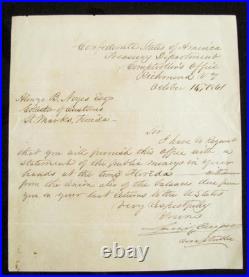 Confederate States of America
Treasury Department
Comptroller's Office
Richmond Va
October 16, 1861
Henry B. Noyes Esq
Collector of Customs
St. Marks, Florida
Sir
I have to request
that you will furnish this office with a
statement of the public moneys in your
hands at the time Florida withdrew
from the Union also of the balances due from
you in your last returns to the U States
Very Respectfully
Yours
Comptroller